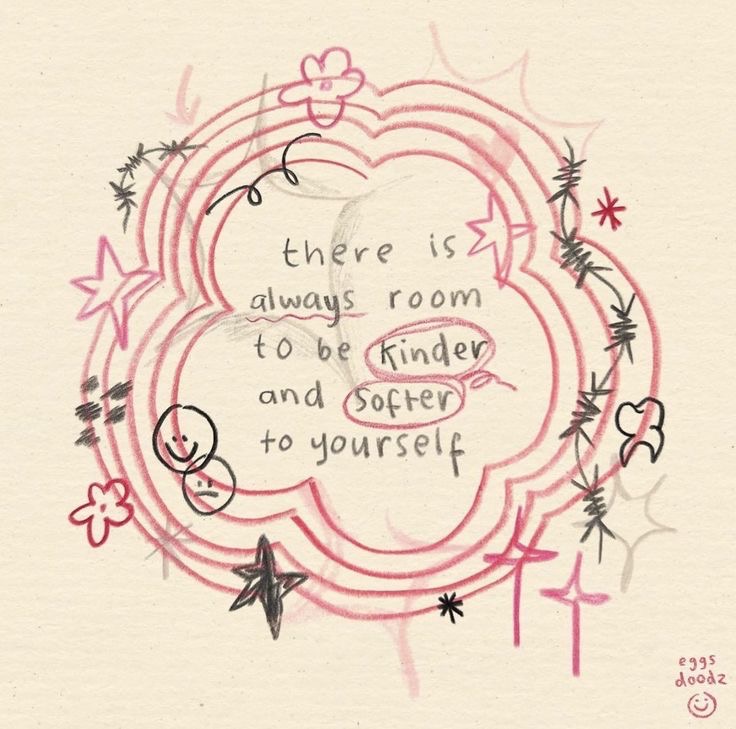 there is
always room
to be kinder
and softer
to yourself
eggs
doodz